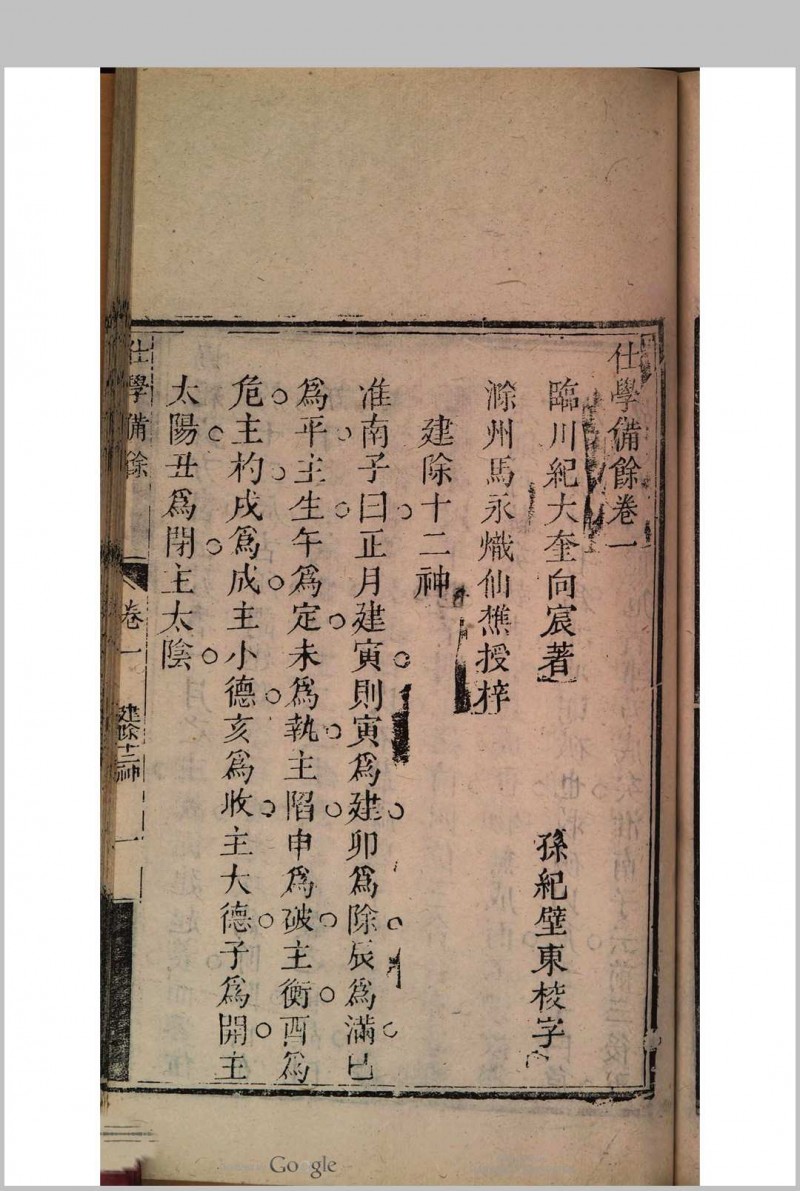 仕學備餘卷一
臨川紀大奎向宸著
孫紀壁東校字
滁州馬永熾仙樵授梓
建除十二神
淮南子曰正月建寅則寅爲建卯爲除辰爲滿巳
爲平主生午爲定未爲執主陷申爲破主衡酉爲
危主杓戌爲成主小德亥爲收主大德子爲開主
太陽丑爲閉主太陰
仕學備餘 卷一 建除十二神 一
Google